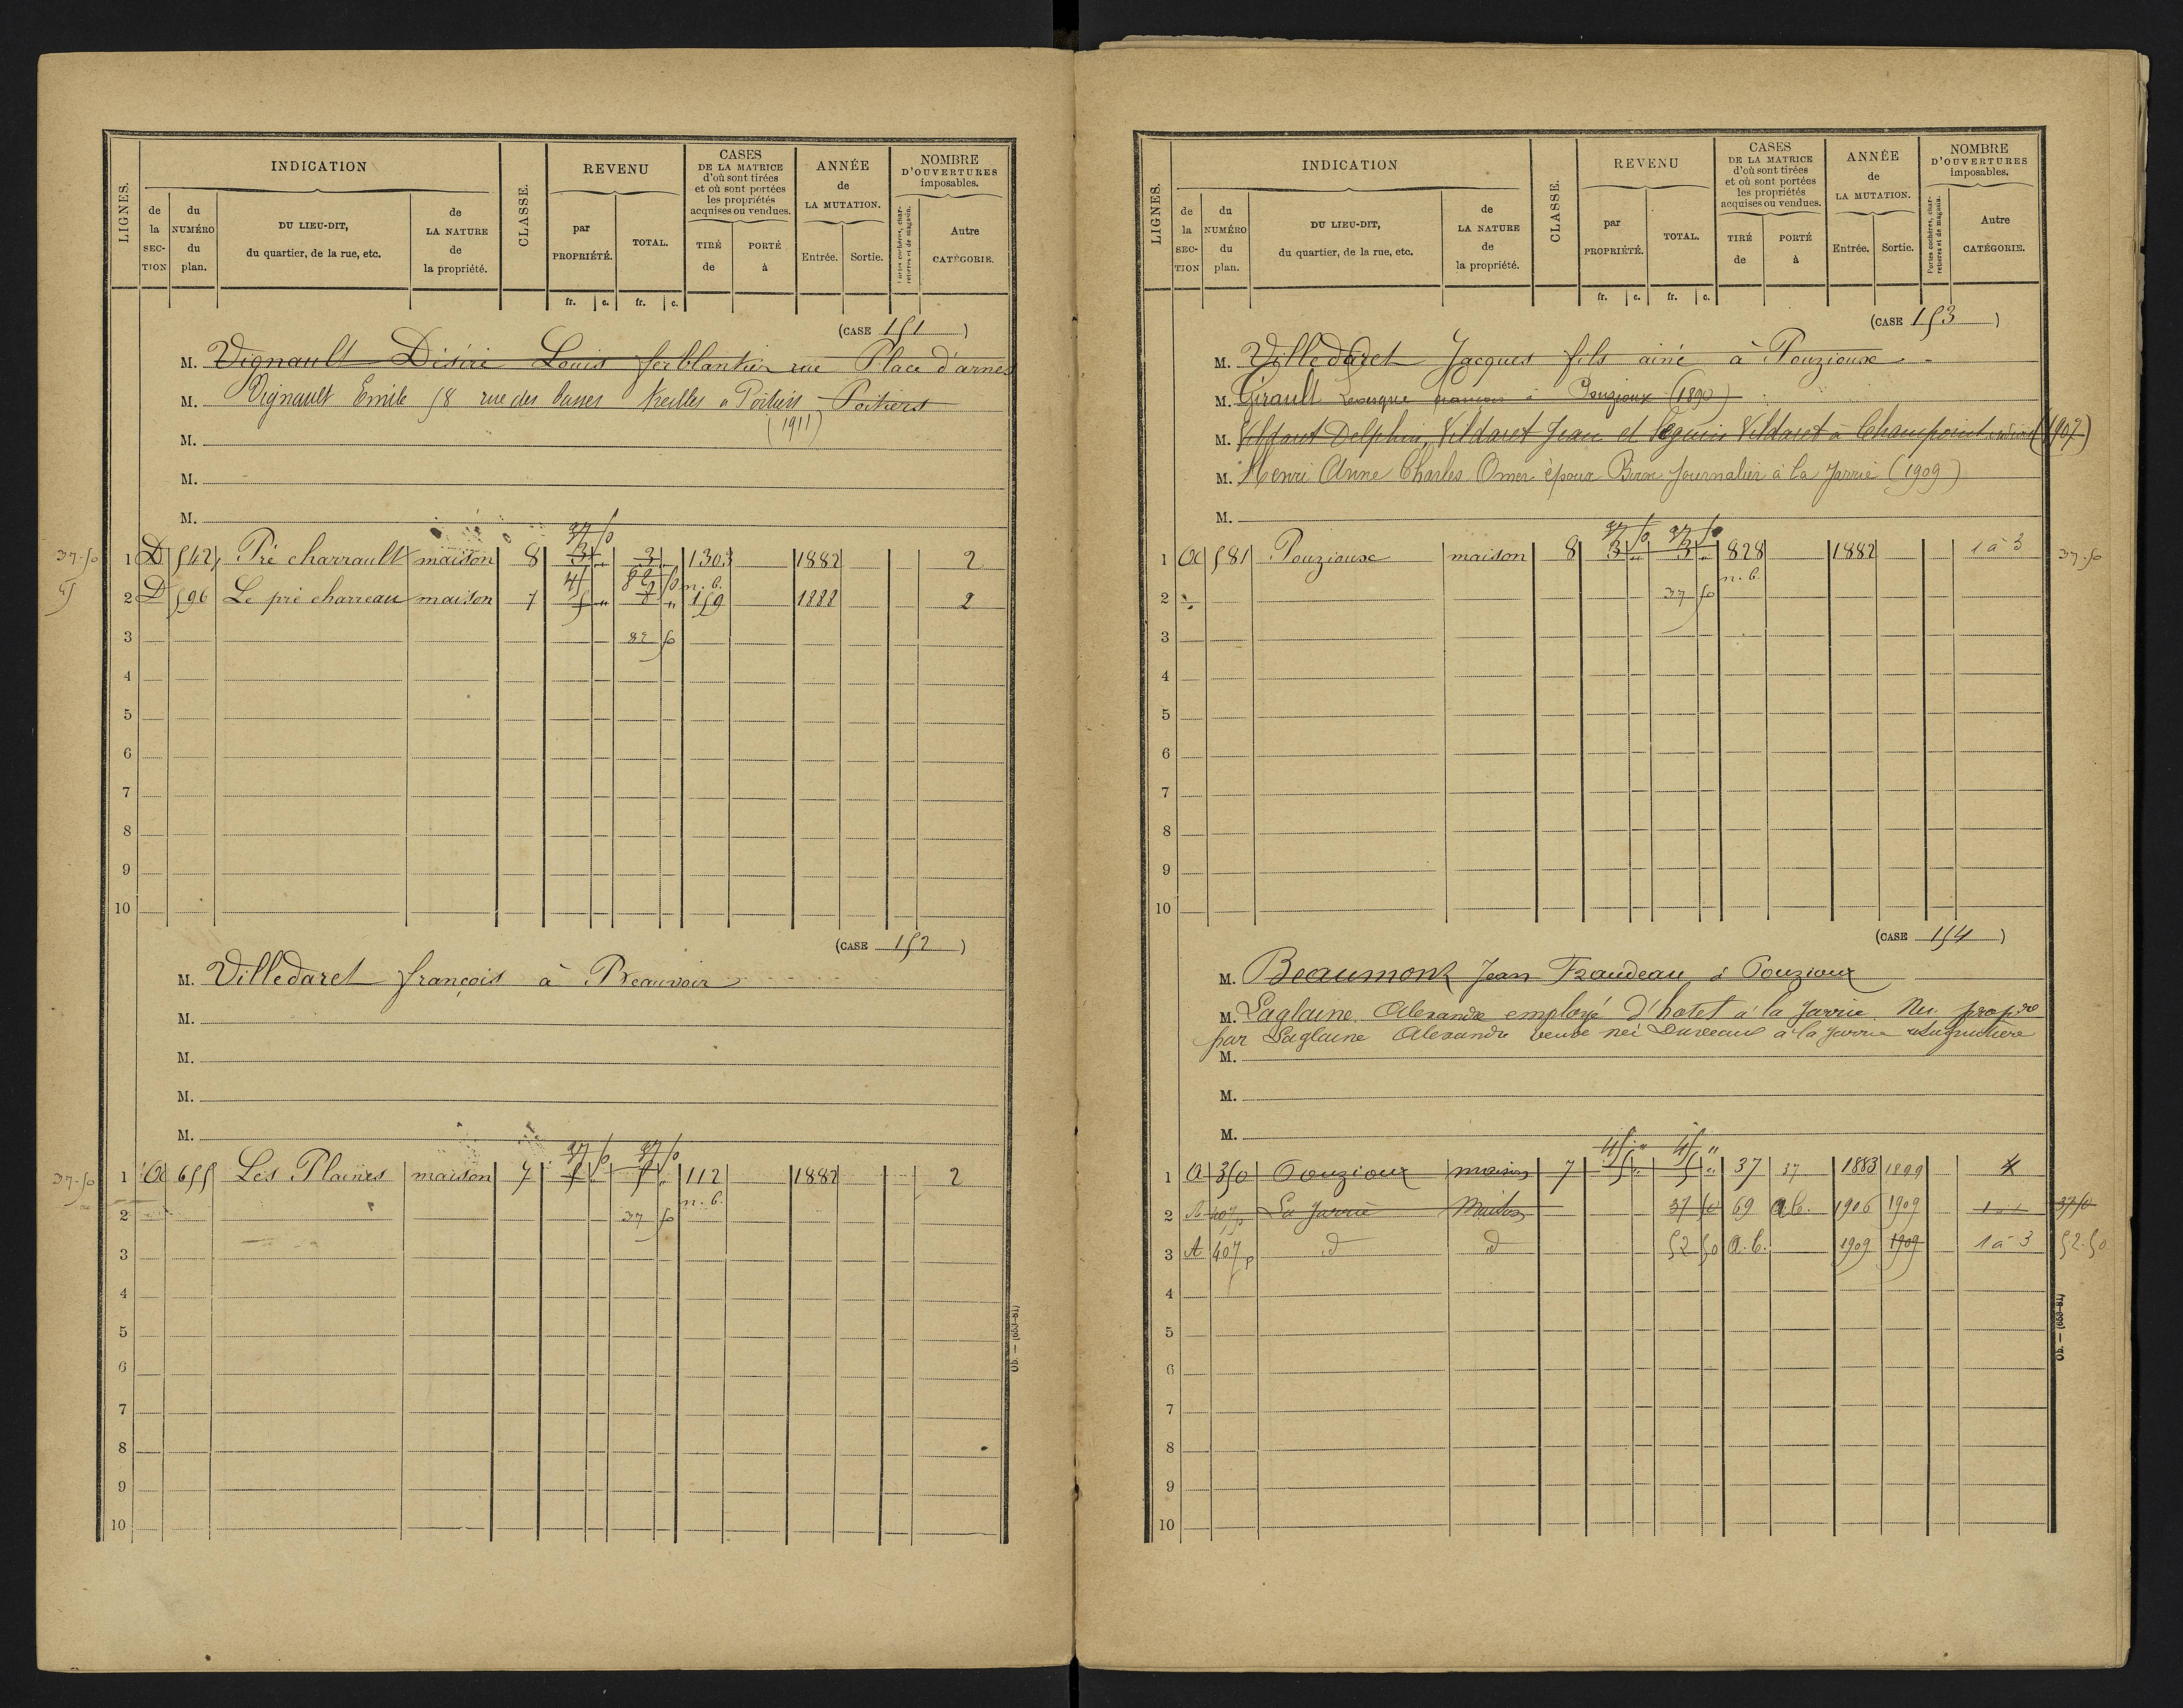 LIGNES. INDICATION CLASSE. REVENU CASES DE LA MATRICE d'où sont tirées et où sont portées les propriétés acquises ou vendues. ANNÉE de LA MUTATION. NOMBRE D'OUVERTURES imposables.
de la SECTION du NUMÉRO du plan. DU LIEU-DIT, du quartier, de la rue, etc. de LA NATURE de la propriété. par PROPRIÉTÉ. TOTAL. TIRÉ de PORTÉ à Entrée. Sortie. Portes cochères, charretières et de magasin. Autre CATÉGORIE.
fr. c. fr. c.
(CASE 151)
M. Vignault Désiré Louis ferblantier rue Place d'armes
M. Vignault Emile 58 rue des basses treilles à Poitiers Poitiers
(1911)
M.
M.
M.
37 50
37-50 1 D 542 Pré charrault maison 8 3 " 3 " 1303 1882 2
45 82 50 n. b.
45 2 D 596 Le pré charreau maison 7 5 " 8 " 159 1888 2
3 82 50
4
5
6
7
8
9
10
(CASE 152)
M. Villedaret françois à Beauvoir
M.
M.
M.
M.
37 50 37 50
37-50 1 A 655 Les Plaines maison 7 5 " 5 " 112 1882 2
2 37 50 n. b.
3
4
5
6
7
8
9
10
Ob. — (653-81)
LIGNES. INDICATION CLASSE. REVENU CASES DE LA MATRICE d'où sont tirées et où sont portées les propriétés acquises ou vendues. ANNÉE de LA MUTATION. NOMBRE D'OUVERTURES imposables.
de la SECTION du NUMÉRO du plan. DU LIEU-DIT, du quartier, de la rue, etc. de LA NATURE de la propriété. par PROPRIÉTÉ. TOTAL. TIRÉ de PORTÉ à Entrée. Sortie. Portes cochères, charretières et de magasin. Autre CATÉGORIE.
fr. c. fr. c.
(CASE 153)
M. Villedaret Jacques fils ainé à Pouzioux
M. Girault Levesque françois à Pouzioux (1890)
M. Vildaret Delphin, Vildaret Jean et Seguin Vildaret à Champoint (1907)
M. Henri Anne Charles Omer époux Biron Journalier à la Jarrie (1909)
M.
37 50 37 50
1 A 581 Pouzioux maison 8 3 " 3 " 828 1882 1 à 3 37-50
2 37 50 n. b.
3
4
5
6
7
8
9
10
(CASE 154)
M. Beaumont Jean Fraudeau à Pouzioux
M. Laglaine Alexandre employé d'hotel à la Jarrie Nu propre
par Laglaine Alexandre veuve née à la Jarrie usufruitière
M.
M.
M.
45 " 45 "
1 A 350 Pouzioux maison 7 5 " 5 " 37 37 1883 1899 4
2 A 407 p La Jarrie Maison 37 50 69 a.b. 1906 1909 37 50
3 A 407 p d d 52 50 a. b. 1909 1909 1 à 3 52-50
4
5
6
7
8
9
10
Ob. — (653-81)